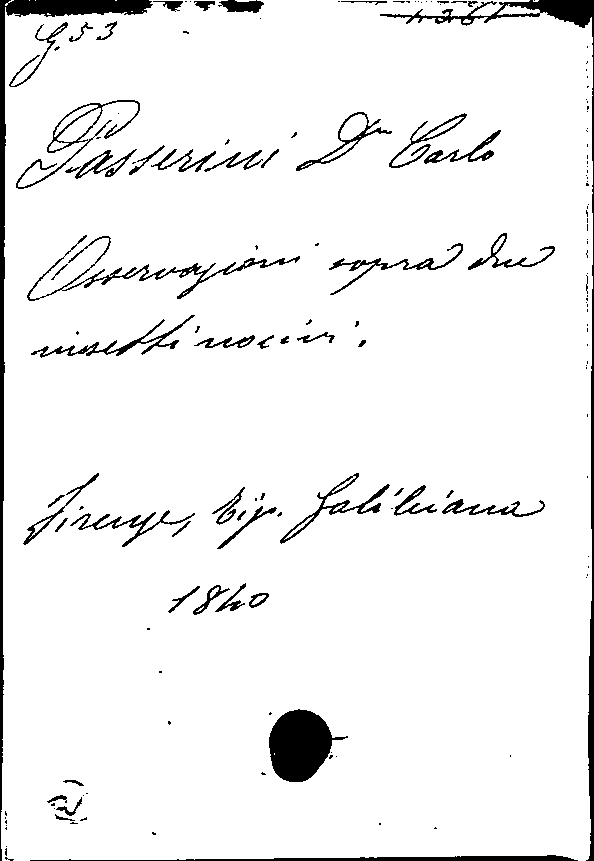 G.53
1361
Passerini Dr. Carlo
Osservazioni sopra due
insetti nocivi.
Firenze, Tip. Galileiana
1840